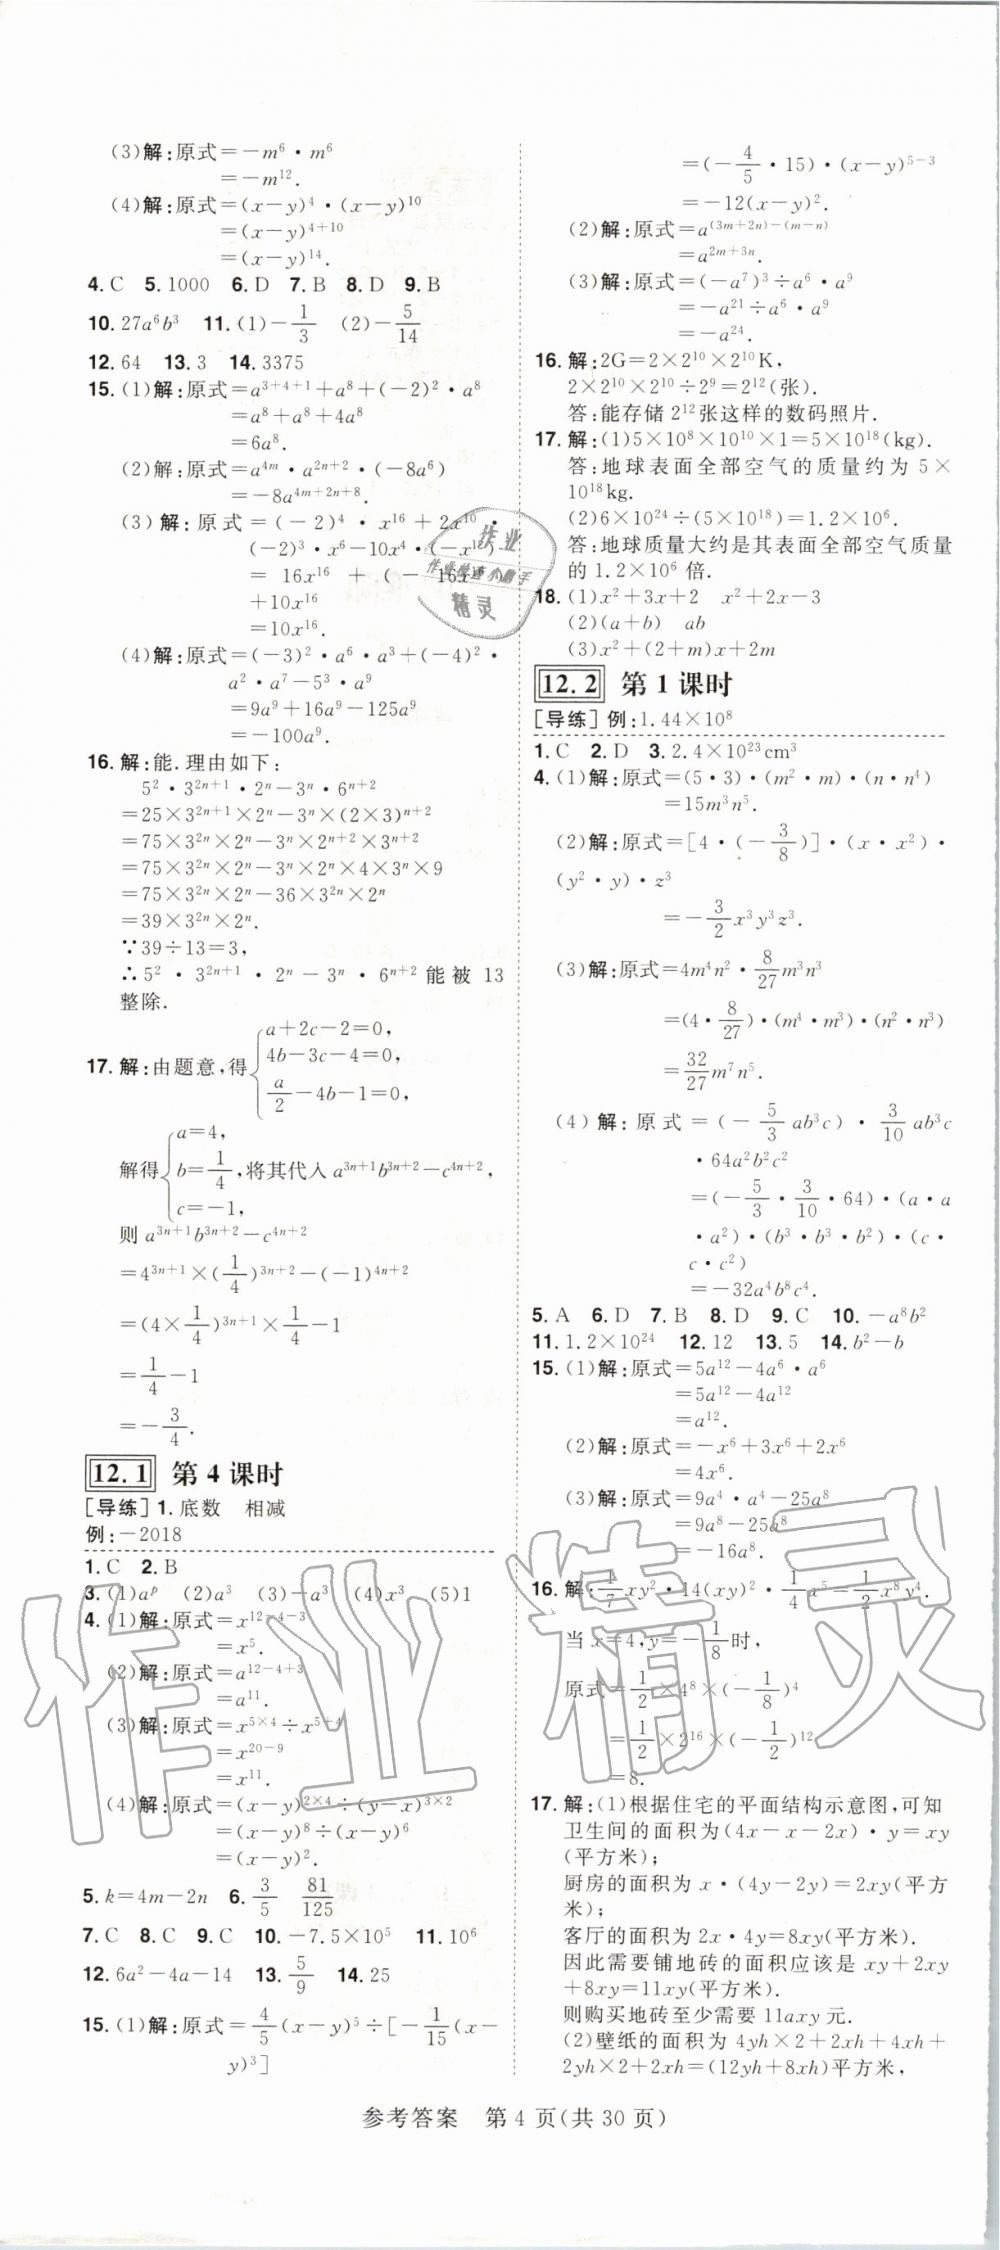 (3)解:原式=-m⁶·m⁶
=-m¹².
(4)解:原式=(x-y)⁴·(x-y)¹⁰
=(x-y)⁴⁺¹⁰
=(x-y)¹⁴.
4. C 5. 1000 6. D 7. B 8. D 9. B
10. 27a⁶b³ 11. (1)-1/3 (2)-5/14
12. 64 13. 3 14. 3375
15. (1)解:原式=a³⁺⁴⁺¹+a⁸+(-2)²·a⁸
=a⁸+a⁸+4a⁸
=6a⁸.
(2)解:原式=a^(4m)·a^(2n+2)·(-8a⁶)
=-8a^(4m+2n+8).
(3)解:原式=(-2)⁴·x¹⁶+2x¹⁰·
(-2)³·x⁶-10x⁴·(-x¹²)
=16x¹⁶+(-16x¹⁶)
+10x¹⁶
=10x¹⁶.
(4)解:原式=(-3)²·a⁶·a³+(-4)²·
a²·a⁷-5³·a⁹
=9a⁹+16a⁹-125a⁹
=-100a⁹.
16. 解:能.理由如下:
5²·3^(2n+1)·2^n-3^n·6^(n+2)
=25×3^(2n+1)×2^n-3^n×(2×3)^(n+2)
=75×3^(2n)×2^n-3^n×2^(n+2)×3^(n+2)
=75×3^(2n)×2^n-3^n×2^n×4×3^n×9
=75×3^(2n)×2^n-36×3^(2n)×2^n
=39×3^(2n)×2^n.
∵39÷13=3,
∴5²·3^(2n+1)·2^n-3^n·6^(n+2)能被 13
整除.
17. 解:由题意,得{a+2c-2=0,
4b-3c-4=0,
a/2-4b-1=0,
解得{a=4,
b=1/4,将其代入a^(3n+1)b^(3n+2)-c^(4n+2),
c=-1,
则a^(3n+1)b^(3n+2)-c^(4n+2)
=4^(3n+1)×(1/4)^(3n+2)-(-1)^(4n+2)
=(4×1/4)^(3n+1)×1/4-1
=1/4-1
=-3/4.
12.1 第 4 课时
[导练]1.底数 相减
例:-2018
1. C 2. B
3. (1)a^p (2)a³ (3)-a³ (4)x³ (5)1
4. (1)解:原式=x¹²⁻⁴⁻³
=x⁵.
(2)解:原式=a¹²⁻⁴⁺³
=a¹¹.
(3)解:原式=x^(5×4)÷x⁵⁺⁴
=x²⁰⁻⁹
=x¹¹.
(4)解:原式=(x-y)^(2×4)÷(y-x)^(3×2)
=(x-y)⁸÷(x-y)⁶
=(x-y)².
5. k=4m-2n 6. 3/5 81/125
7. C 8. C 9. C 10. -7.5×10⁵ 11. 10⁶
12. 6a²-4a-14 13. 5/9 14. 25
15. (1)解:原式=4/5(x-y)⁵÷[-1/15(x-
y)³]
=(-4/5·15)·(x-y)⁵⁻³
=-12(x-y)².
(2)解:原式=a^((3m+2n)-(m-n))
=a^(2m+3n).
(3)解:原式=(-a⁷)³÷a⁶·a⁹
=-a²¹÷a⁶·a⁹
=-a²⁴.
16. 解:2G=2×2¹⁰×2¹⁰K,
2×2¹⁰×2¹⁰÷2⁹=2¹²(张).
答:能存储2¹²张这样的数码照片.
17. 解:(1)5×10⁸×10¹⁰×1=5×10¹⁸(kg).
答:地球表面全部空气的质量约为 5×
10¹⁸kg.
(2)6×10²⁴÷(5×10¹⁸)=1.2×10⁶.
答:地球质量大约是其表面全部空气质量
的1.2×10⁶倍.
18. (1)x²+3x+2 x²+2x-3
(2)(a+b) ab
(3)x²+(2+m)x+2m
12.2 第 1 课时
[导练]例:1.44×10⁸
1. C 2. D 3. 2.4×10²³cm³
4. (1)解:原式=(5·3)·(m²·m)·(n·n⁴)
=15m³n⁵.
(2)解:原式=[4·(-3/8)]·(x·x²)·
(y²·y)·z³
=-3/2x³y³z³.
(3)解:原式=4m⁴n²·8/27m³n³
=(4·8/27)·(m⁴·m³)·(n²·n³)
=32/27m⁷n⁵.
(4)解:原式=(-5/3ab³c)·3/10ab³c
·64a²b²c²
=(-5/3·3/10·64)·(a·a
·a²)·(b³·b³·b²)·(c·
c·c²)
=-32a⁴b⁸c⁴.
5. A 6. D 7. B 8. D 9. C 10. -a⁸b²
11. 1.2×10²⁴ 12. 12 13. 5 14. b²-b
15. (1)解:原式=5a¹²-4a⁶·a⁶
=5a¹²-4a¹²
=a¹².
(2)解:原式=-x⁶+3x⁶+2x⁶
=4x⁶.
(3)解:原式=9a⁴·a⁴-25a⁸
=9a⁸-25a⁸
=-16a⁸.
16. 解:1/7xy²·14(xy)²·1/4x⁵=1/2x⁸y⁴.
当x=4,y=-1/8时,
原式=1/2×4⁸×(-1/8)⁴
=1/2×2¹⁶×(-1/2)¹²
=8.
17. 解:(1)根据住宅的平面结构示意图,可知
卫生间的面积为(4x-x-2x)·y=xy
(平方米);
厨房的面积为x·(4y-2y)=2xy(平方
米);
客厅的面积为2x·4y=8xy(平方米).
因此需要铺地砖的面积应该是xy+2xy
+8xy=11xy(平方米).
则购买地砖至少需要11axy元.
(2)壁纸的面积为4yh×2+2xh+4xh+
2yh×2+2xh=(12yh+8xh)平方米,
参考答案 第 4 页(共 30 页)
作业
作业快速小助手
精灵
作业精灵